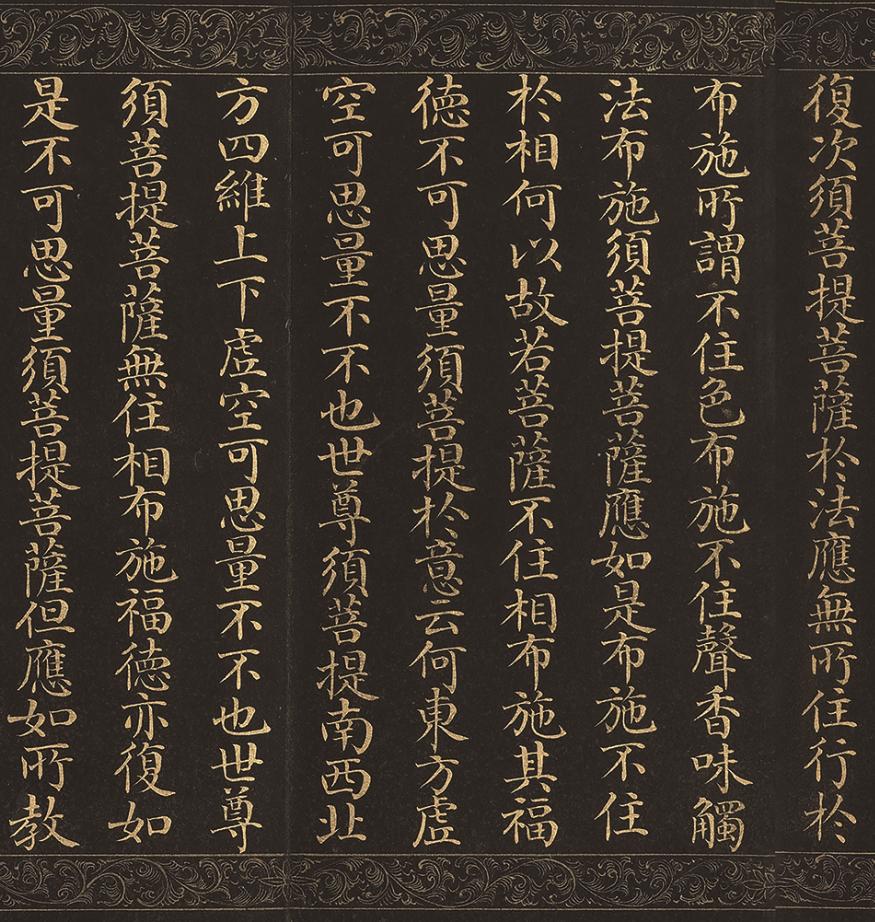 復次須菩提菩薩於法應無所住行於
布施所謂不住色布施不住聲香味觸
法布施須菩提菩薩應如是布施不住
於相何以故若菩薩不住相布施其福
德不可思量須菩提於意云何東方虛
空可思量不不也世尊須菩提南西北
方四維上下虛空可思量不不也世尊
須菩提菩薩無住相布施福德亦復如
是不可思量須菩提菩薩但應如所教